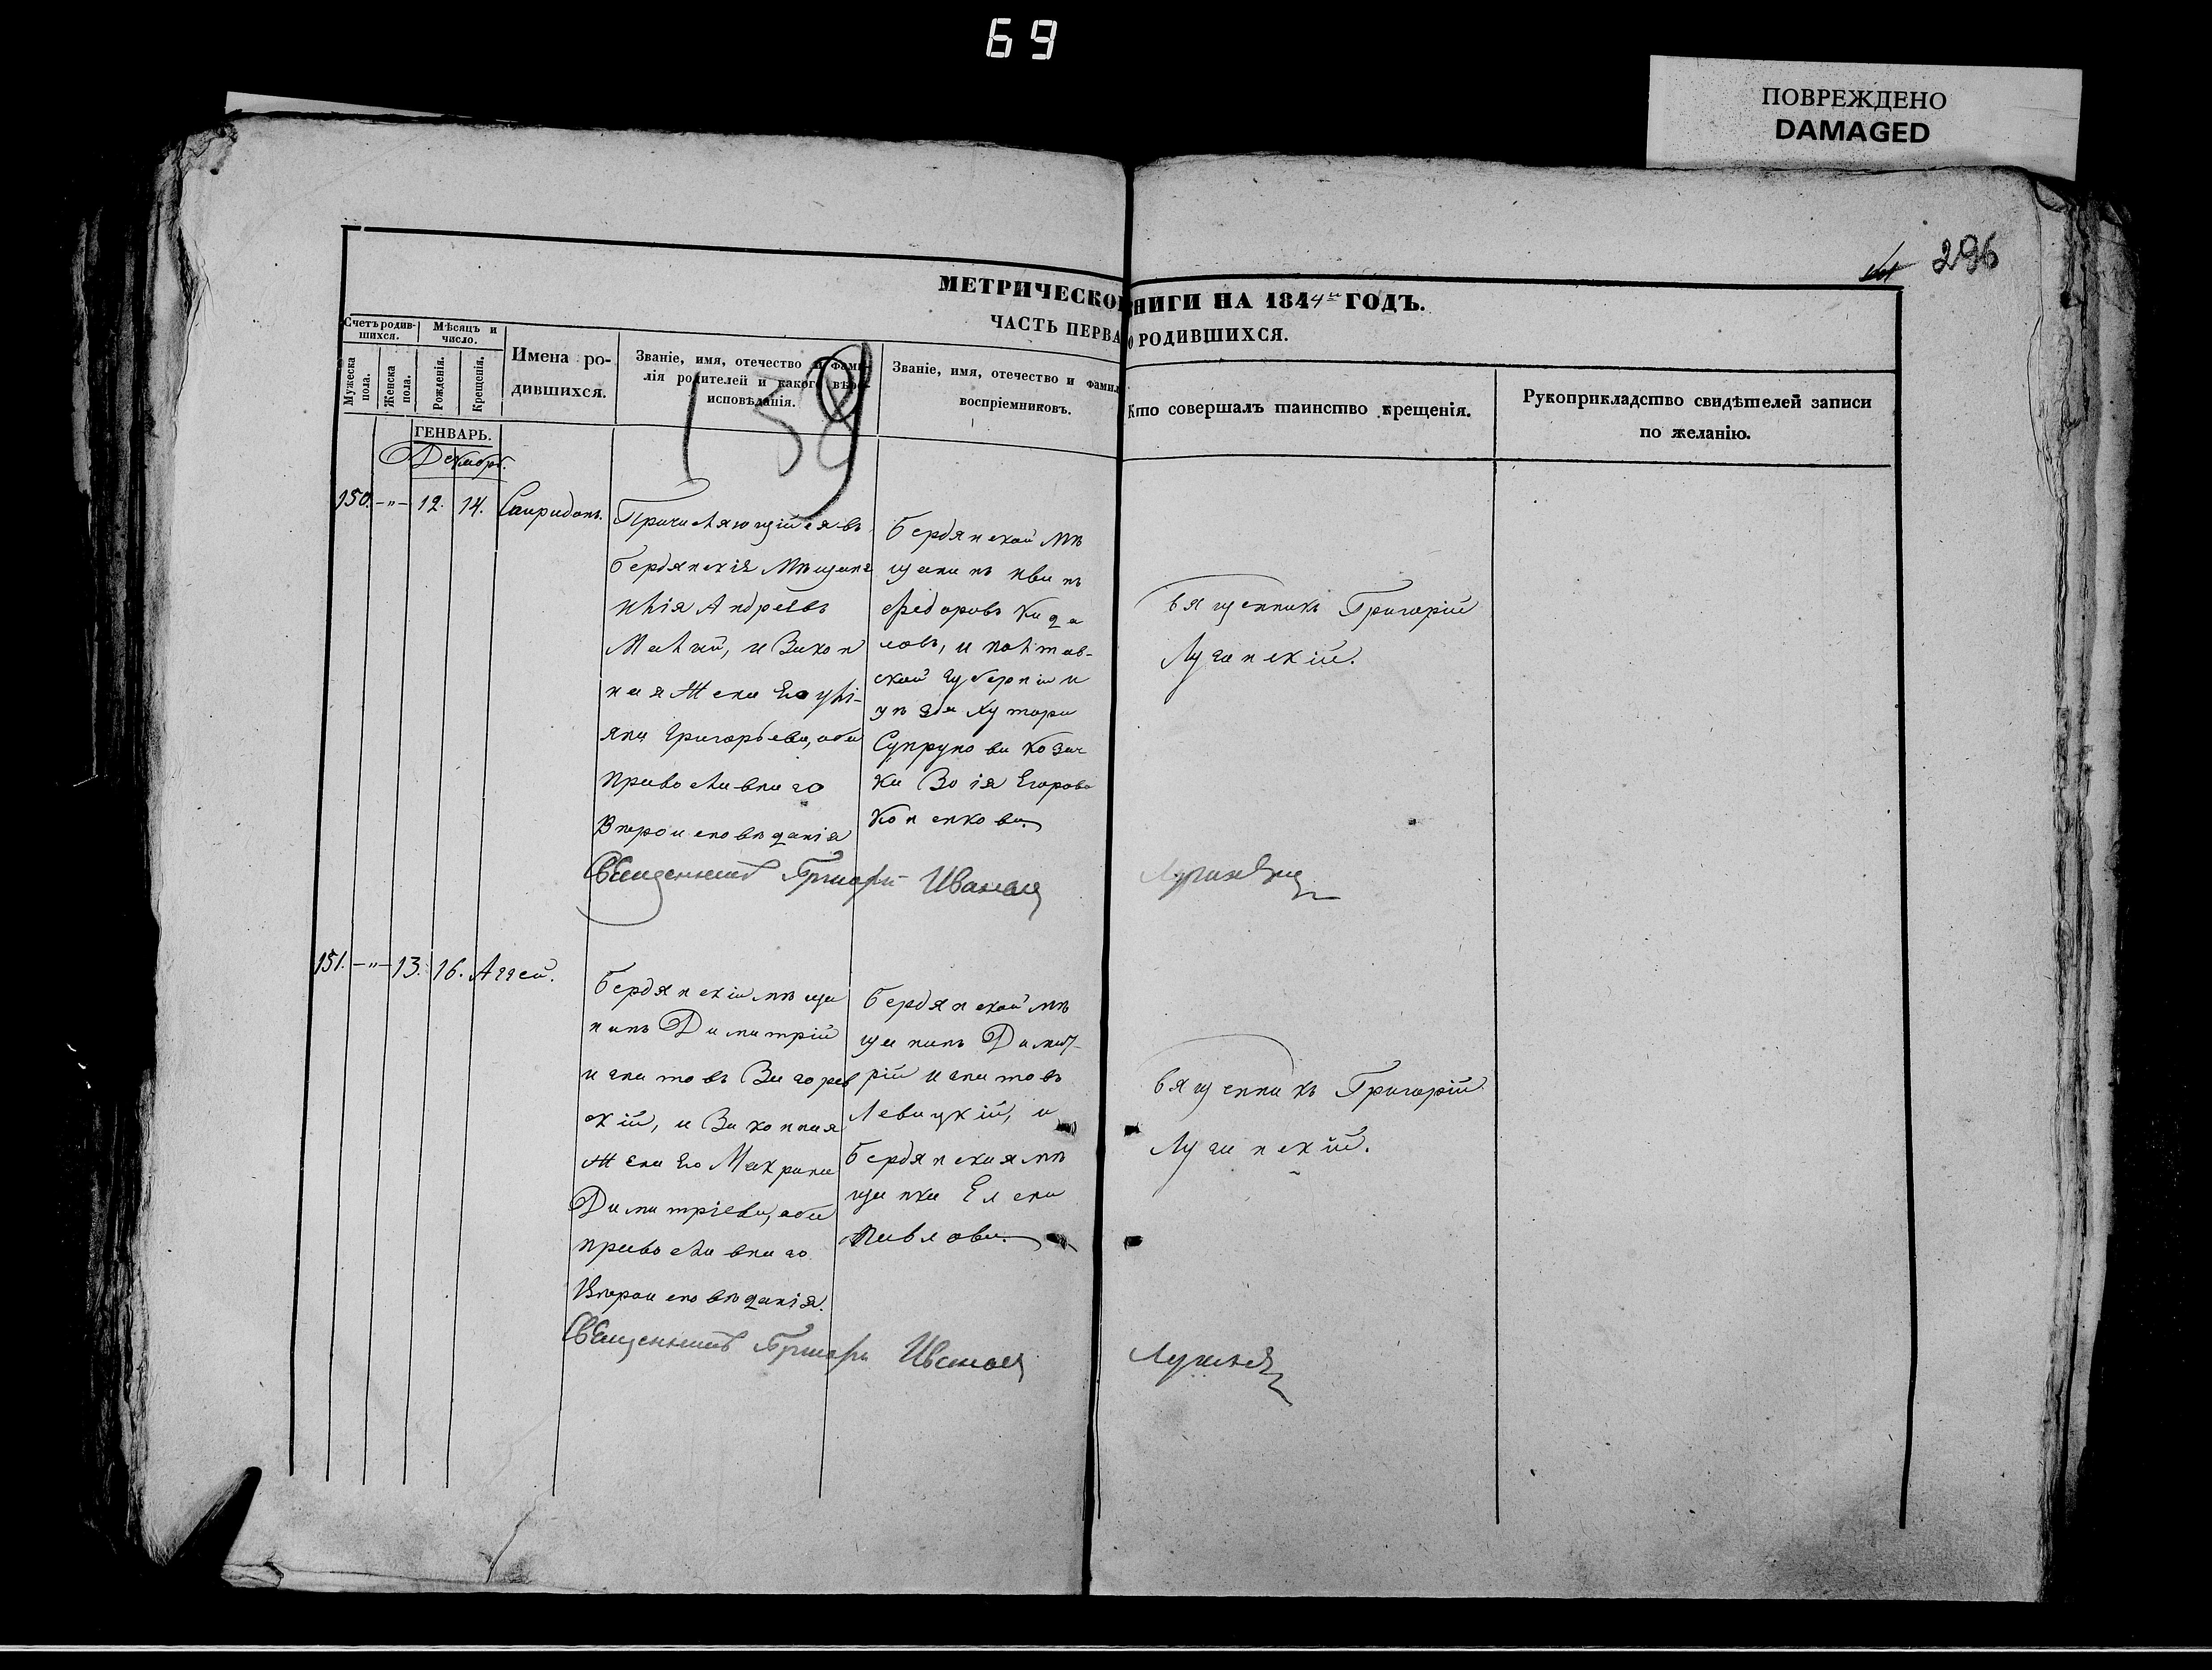 69
ПОВРЕЖДЕНО
DAMAGED
296
МЕТРИЧЕСКО НИГИ НА 1844й ГОДЪ.
ЧАСТЬ ПЕРВА О РОДИВШИХСЯ.
Счетъ родив-
шихся.
Мѣсяцъ и
число.
Мужеска
пола.
Женска
пола.
Рожденія.
Крещенія.
Имена ро-
дившихся.
Званіе, имя, отечество и фами-
лія родителей и какого вѣро-
исповѣданія.
Званіе, имя, отечество и фамил
воспріемниковъ.
Кто совершалъ таинство крещенія.
Рукоприкладство свидѣтелей записи
по желанію.
138
ГЕНВАРЬ.
Декабрь.
150. -"- 12. 14. Спиридонъ.
Причисляющійся въ
бердянскія Мѣщане
Андреевъ
и Закон
ная Жена Его Улі-
яна Григорьева, оба
православнаго
Вѣроисповѣданія
Бердянской мѣ
щанинъ Иванъ
Федоровъ
и Полтав-
ской губерніи и
уѣзда Хутора
Супрунова козач
ка Зо ія Егорова
Священникъ Григорій
Луганскій.
Священникъ Григорій Иванов Луганскій
151. -"- 13. 16. Аггей.
Бердянскій мѣща
нинъ Димитрій
Игнатовъ Загорев
скій, и Законная
Жена Его Макрина
Димитріева, оба
православнаго
Вѣроисповѣданія.
Бердянской мѣ
щанинъ Димит-
рій Игнатовъ
Левицкій, и
Бердянская мѣ
щанка Елена
Павлова.
Священникъ Григорій
Луганскій.
Священникъ Григорій Иванов